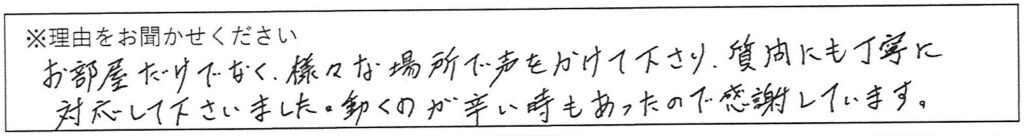 ※理由をお聞かせください
お部屋だけでなく、様々な場所で声をかけて下さり、質問にも丁寧に
対応して下さいました。動くのが辛い時もあったので感謝しています。